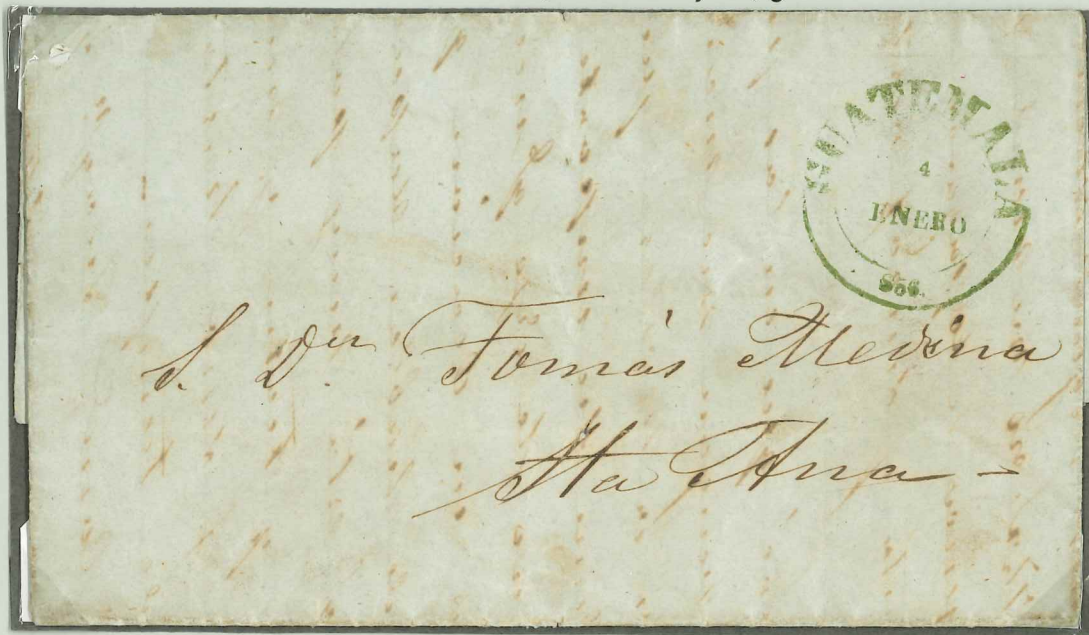 GUATEMALA
4
ENERO
S. Dn Tomás Medina
Sta Ana -